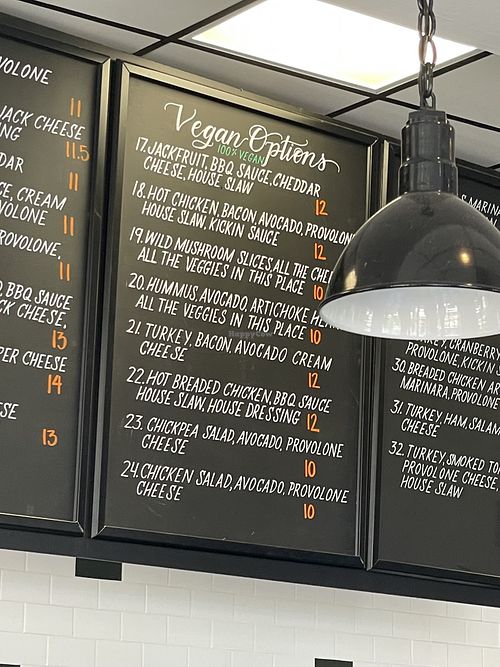 VOLONE
11
JACK CHEESE
11.5
11
CE, CREAM
VOLONE 11
ROVOLONE,
11
, BBQ SAUCE
CK CHEESE,
13
PER CHEESE
14
13
Vegan Options
100% VEGAN
17. JACKFRUIT, BBQ SAUCE, CHEDDAR
CHEESE, HOUSE SLAW
12
18. HOT CHICKEN, BACON, AVOCADO, PROVOLONE
HOUSE SLAW, KICKIN SAUCE
12
19. WILD MUSHROOM SLICES, ALL THE CHE
ALL THE VEGGIES IN THIS PLACE 10
20. HUMMUS, AVOCADO, ARTICHOKE
ALL THE VEGGIES IN THIS PLACE 10
21. TURKEY, BACON, AVOCADO CREAM
CHEESE
12
22. HOT BREADED CHICKEN, BBQ SAUCE
HOUSE SLAW, HOUSE DRESSING 12
23. CHICKPEA SALAD, AVOCADO, PROVOLONE
CHEESE
10
24. CHICKEN SALAD, AVOCADO, PROVOLONE
CHEESE
10
CRANBERR
PROVOLONE, KICKIN S
30. BREADED CHICKEN
MARINARA, PROVOLONE
31. TURKEY, HAM, SALAM
CHEESE
32. TURKEY, SMOKED TO
PROVOLONE CHEESE,
HOUSE SLAW
HappyCow